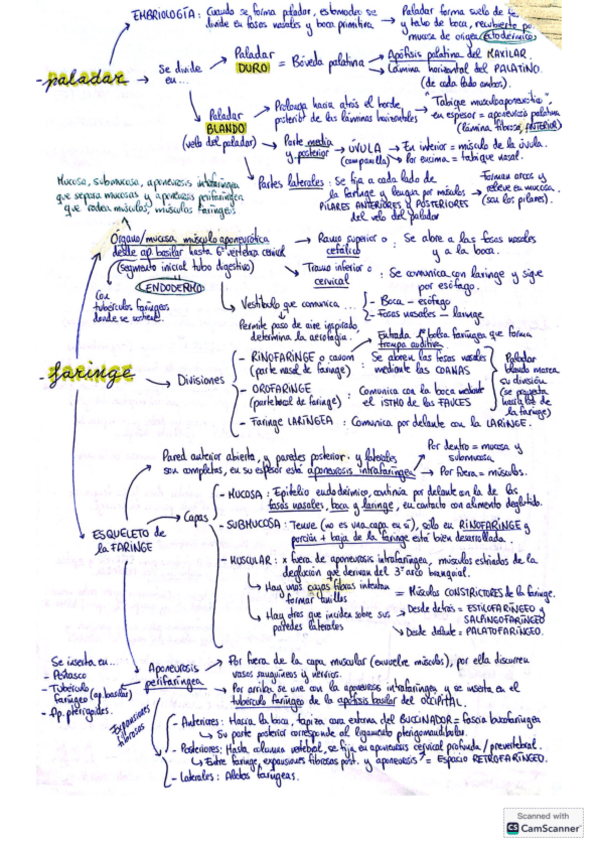 EMBRIOLOGÍA: Cuando se forma paladar, estomodeo se
divide en fosas nasales y boca primitiva
Paladar forma suelo de f.
y techo de boca, recubierto por
mucosa de origen ectodérmico
- paladar
Se divide
en...
Paladar
DURO
= Bóveda palatina
Apófisis palatina del MAXILAR.
Lámina horizontal del PALATINO.
(de cada lado ambos).
Paladar
BLANDO
(velo del paladar)
Prolonga hacia atrás el borde
posterior de las láminas horizontales
"Tabique musculoaponeurótico"
en espesor = aponeurosis palatina
(lámina fibrosa, ANTERIOR)
Parte media
y posterior
ÚVULA
(campanilla)
En inferior = músculo de la úvula.
Por encima = tabique nasal.
Partes laterales: Se fija a cada lado de
la faringe y lengua por músculos
PILARES ANTERIORES y POSTERIORES
del velo del paladar
Forman arcos y
relieve en mucosa.
(son los pilares).
Mucosa, submucosa, aponeurosis intrafaríngea
que separa mucosas y aponeurosis perifaríngea
que rodea músculos, músculos faríngeos
Órgano/mucosa músculo aponeurótica
desde ap. basilar hasta 6ª vértebra cervical
(segmento inicial tubo digestivo)
ENDODERMO
Con
tubérculos faríngeos
donde se sostiene.
Tramo superior o
cefálico
: Se abre a las fosas nasales
y a la boca.
Tramo inferior o
cervical
: Se comunica con laringe y sigue
por esófago.
Vestíbulo que comunica...
- Boca - esófago
- Fosas nasales - laringe
Permite paso de aire inspirado,
determina la aerofagia.
Entrada 1ª bolsa faríngea que forma
trompa auditiva
- faringe
Divisiones
- RINOFARINGE o cavum
(parte nasal de faringe)
: Se abren las fosas nasales
mediante las COANAS
- OROFARINGE
(parte bucal de faringe)
: Comunica con la boca mediante
el ISTMO de las FAUCES
- Faringe LARÍNGEA : Comunica por delante con la LARINGE.
Paladar
blando marca
su división
(se proyecta
hasta
la faringe)
Pared anterior abierta, y paredes posterior y laterales
son completas, en su espesor está aponeurosis intrafaríngea
Por dentro = mucosa y
submucosa
Por fuera = músculos.
ESQUELETO de
la FARINGE
Capas
- MUCOSA: Epitelio endodérmico, continúa por delante en la de las
fosas nasales, boca y laringe, en contacto con alimento deglutido.
- SUBMUCOSA: Tenue (no es una capa en sí), sólo en RINOFARINGE y
porción + baja de la faringe está bien desarrollada.
- MUSCULAR: x fuera de aponeurosis intrafaríngea, músculos estriados de la
deglución que derivan del 3er arco branquial.
Hay unos cuyas fibras intentan
formar anillos
= Músculos CONSTRICTORES de la faringe.
Hay otros que inciden sobre sus
paredes laterales
Desde detrás = ESTILOFARÍNGEO y
SALPINGOFARÍNGEO
Desde delante = PALATOFARÍNGEO.
Se inserta en...
- Peñasco
- Tubérculo
faríngeo (ap. basilar)
- Ap. pterigoides.
Aponeurosis
perifaríngea
Por fuera de la capa muscular (envuelve músculos), por ella discurren
vasos sanguíneos y nervios.
Por arriba se une con la aponeurosis intrafaríngea y se inserta en el
tubérculo faríngeo de la apófisis basilar del OCCIPITAL.
Expansiones
fibrosas
- Anteriores: Hacia la boca, tapiza cara externa del BUCCINADOR = Fascia bucofaríngea
Su parte posterior corresponde al ligamento pterigomandibular.
- Posteriores: Hasta columna vertebral, se fija en aponeurosis cervical profunda/prevertebral.
Entre faringe, expansiones fibrosas post. y aponeurosis = Espacio RETROFARÍNGEO.
- Laterales: Aletas faríngeas.
Scanned with
CS CamScanner